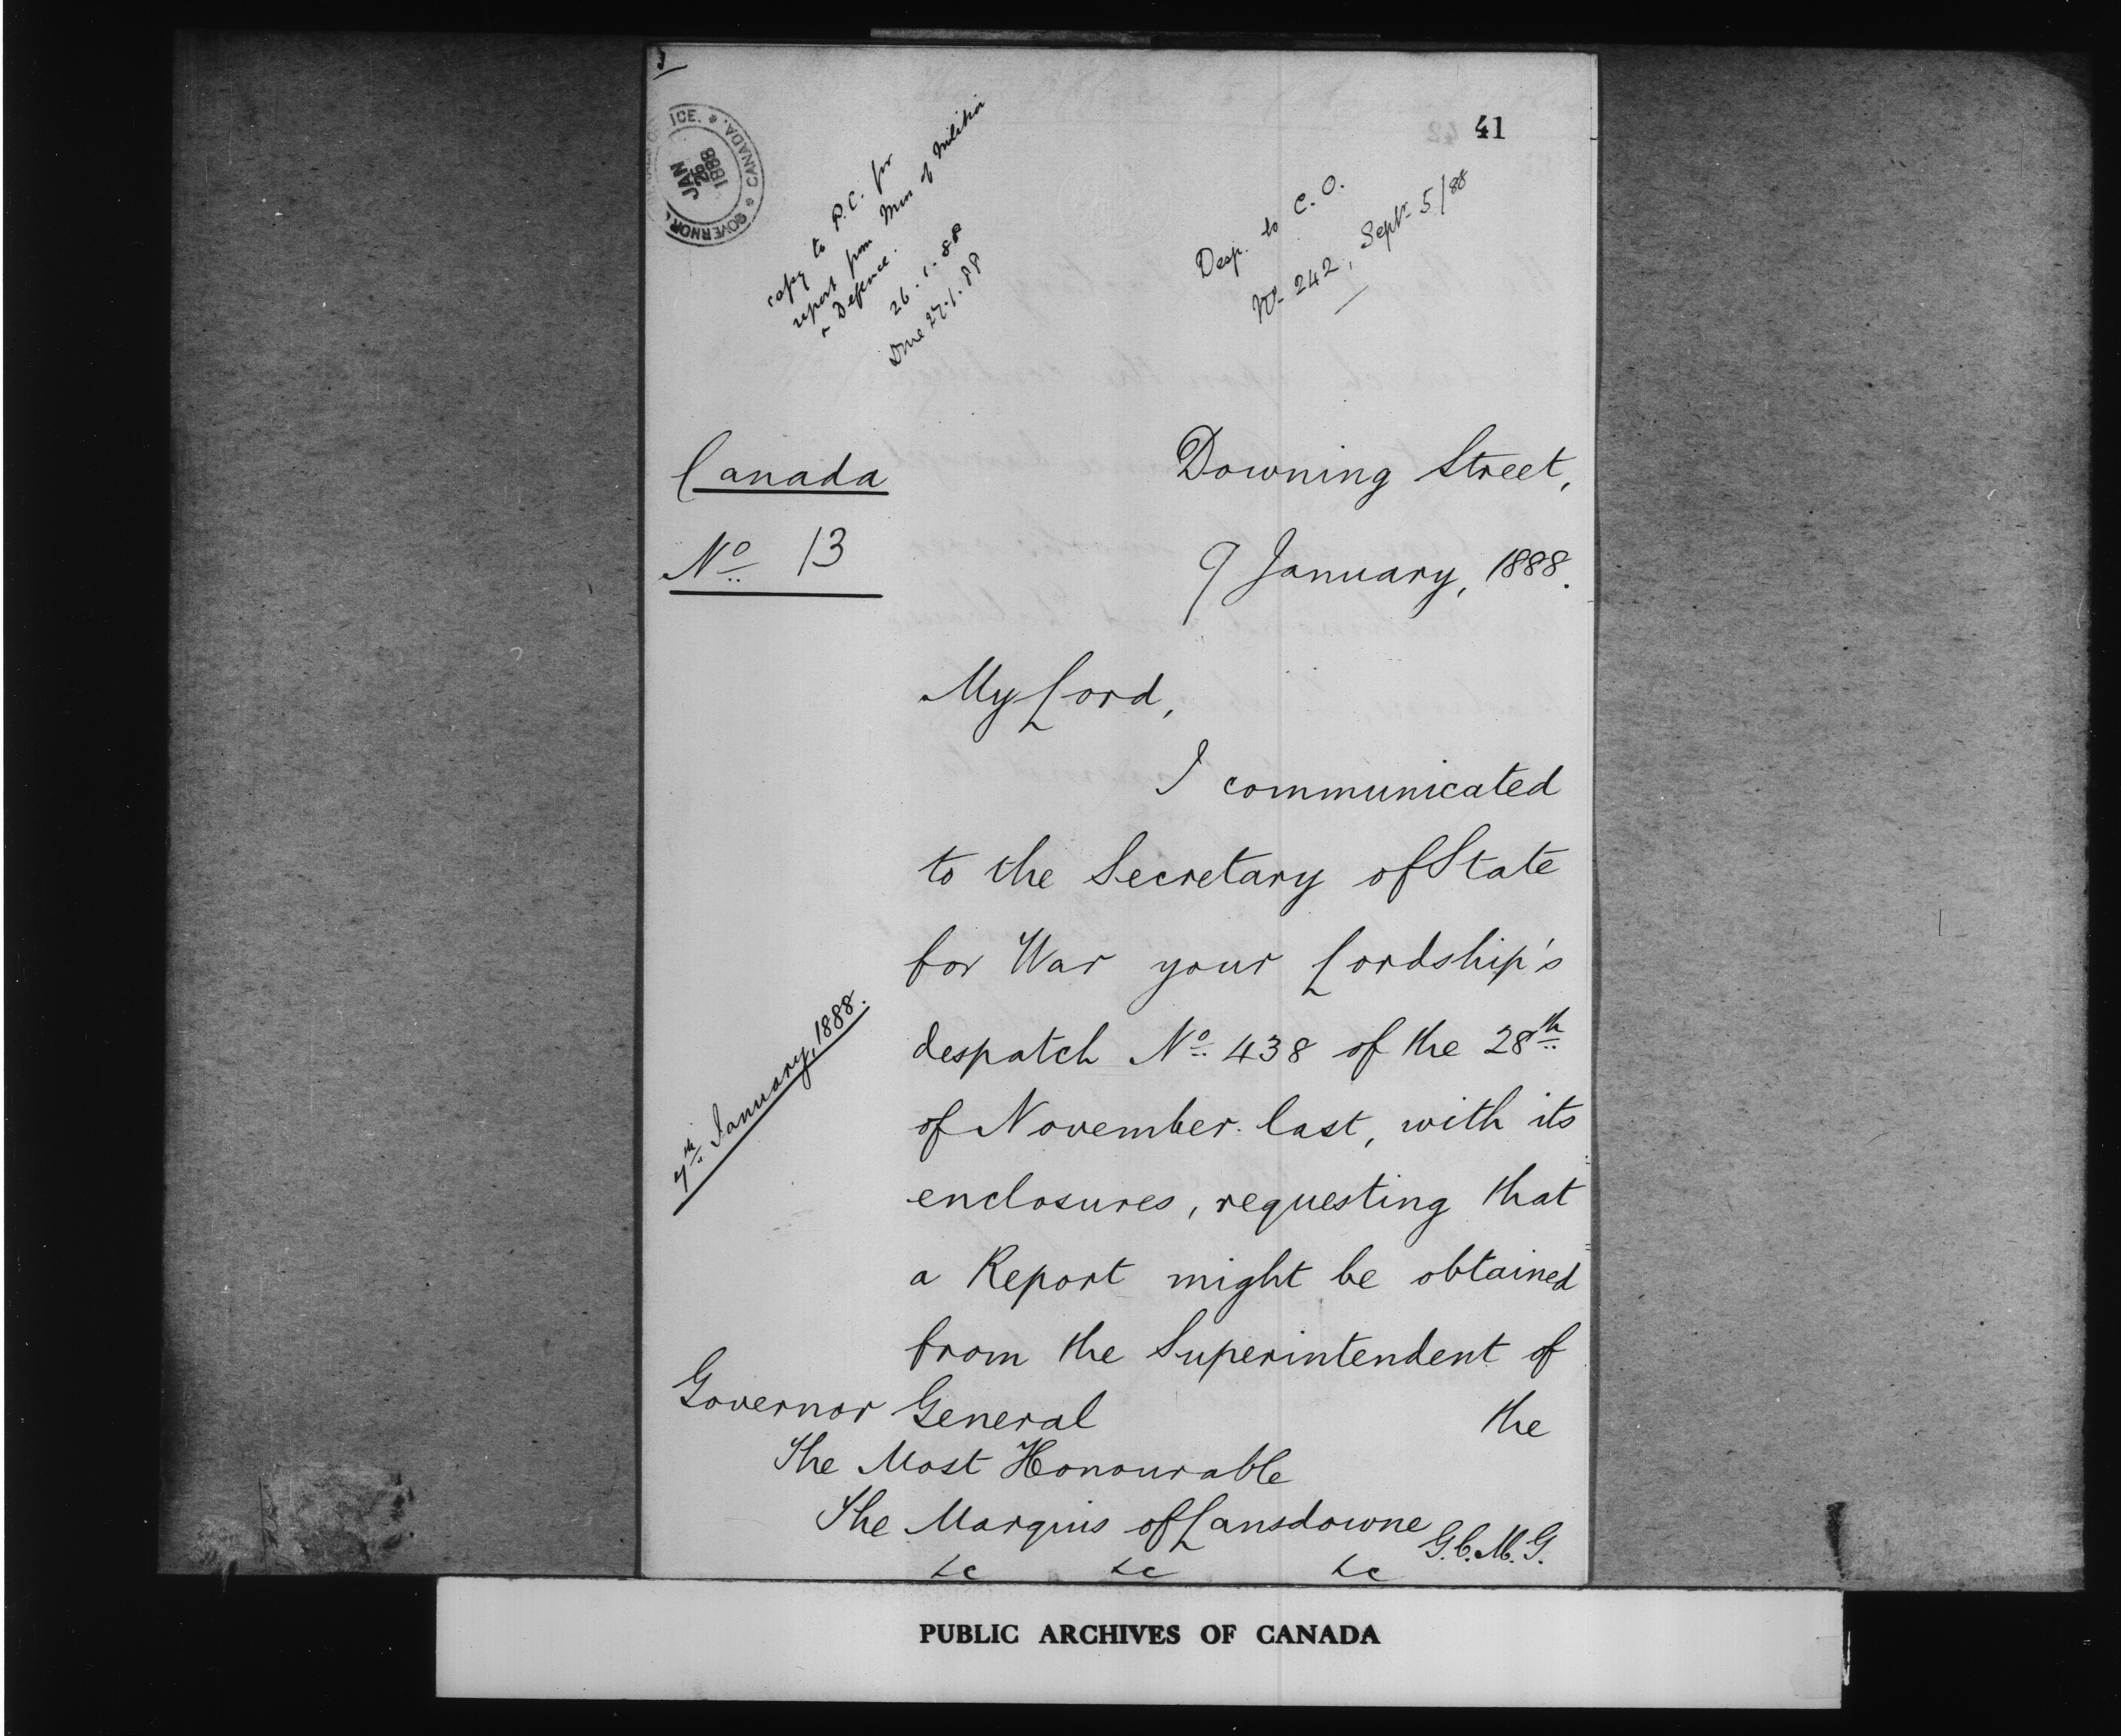 41
GOVERNOR
ICE. * CANADA. *
JAN
26
1888
copy to P.C. for
report from Min of Militia
& Defence.
26.1.88
Done 27.1.88
Desp. to C.O.
No. 242, Septr. 5/88
Canada
No. 13
Downing Street,
9 January, 1888.
My Lord,
I communicated
to the Secretary of State
for War your Lordship's
despatch No. 438 of the 28th
of November last, with its
enclosures, requesting that
a Report might be obtained
from the Superintendent of
the
7th January, 1888.
Governor General
The Most Honourable
The Marquis of Lansdowne G.C.M.G.
&c &c &c
PUBLIC ARCHIVES OF CANADA